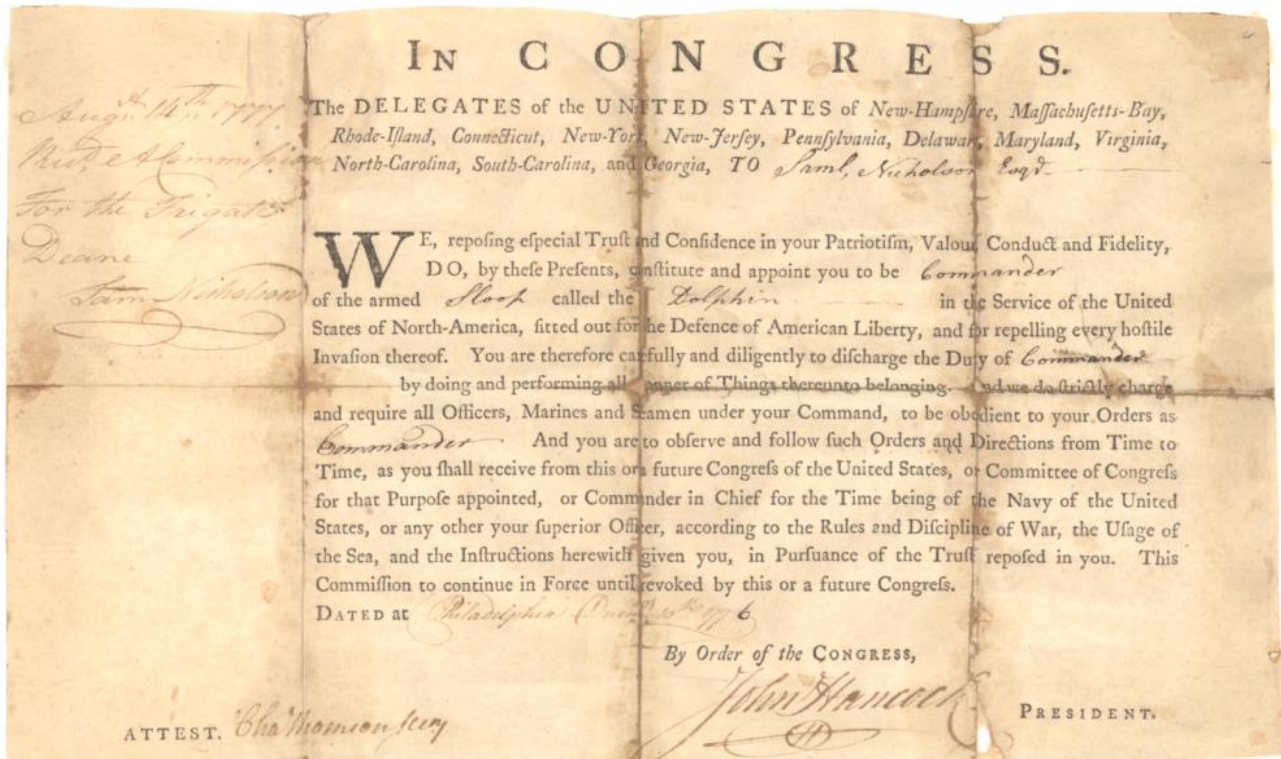 IN CONGRESS.
The DELEGATES of the UNITED STATES of New-Hampſhire, Maſſachuſetts-Bay,
Rhode-Iſland, Connecticut, New-York, New-Jerſey, Pennſylvania, Delaware, Maryland, Virginia,
North-Carolina, South-Carolina, and Georgia, TO Saml, Nicholson Esqr.
WE, repoſing eſpecial Truſt and Confidence in your Patriotiſm, Valour, Conduct and Fidelity,
DO, by theſe Preſents, conſtitute and appoint you to be Commander
of the armed Sloop called the Dolphin in the Service of the United
States of North-America, fitted out for the Defence of American Liberty, and for repelling every hoſtile
Invaſion thereof. You are therefore carefully and diligently to diſcharge the Duty of Commander
by doing and performing all manner of Things thereunto belonging. And we do ſtrictly charge
and require all Officers, Marines and Seamen under your Command, to be obedient to your Orders as
Commander And you are to obſerve and follow ſuch Orders and Directions from Time to
Time, as you ſhall receive from this or a future Congreſs of the United States, or Committee of Congreſs
for that Purpoſe appointed, or Commander in Chief for the Time being of the Navy of the United
States, or any other your ſuperior Officer, according to the Rules and Diſcipline of War, the Uſage of
the Sea, and the Inſtructions herewith given you, in Purſuance of the Truſt repoſed in you. This
Commiſſion to continue in Force until revoked by this or a future Congreſs.
DATED at Philadelphia 1776
By Order of the CONGRESS,
John Hancock
PRESIDENT.
ATTEST. Cha Thomson secy
Augt. 14th 1777
Recd, A Commission
For the Frigate
Deane
Sam Nicholson